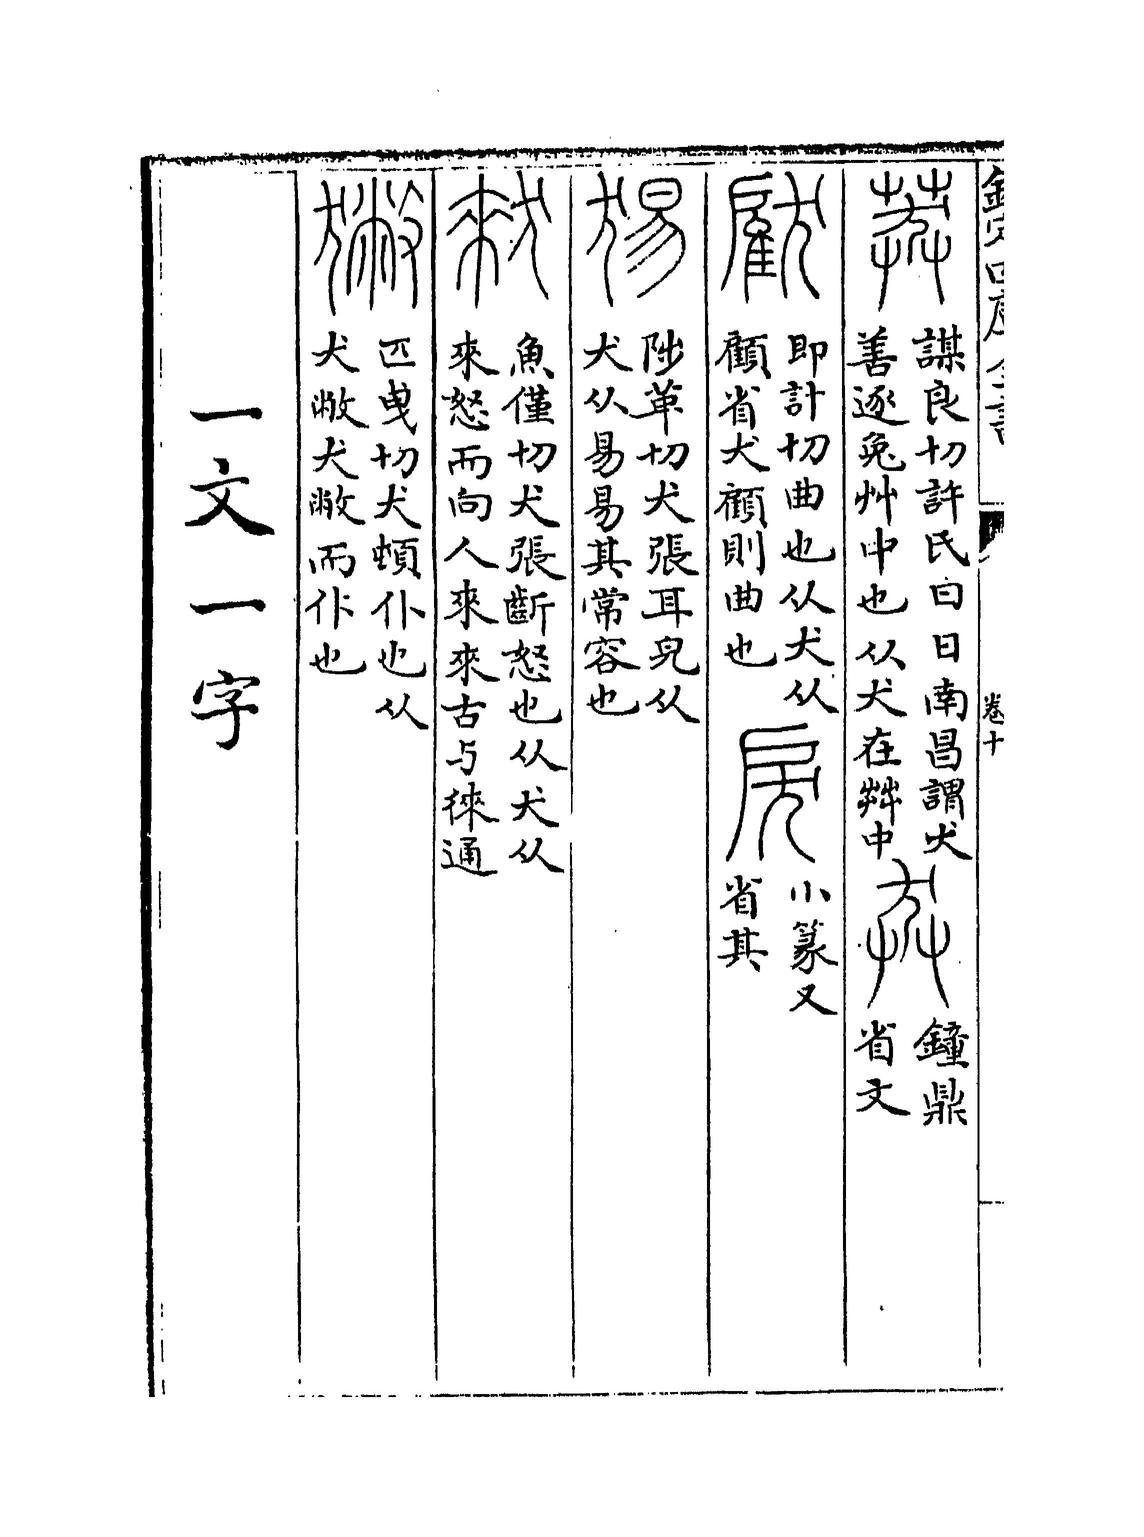 欽定四庫全書
卷十
莽
謀良切許氏曰日南昌謂犬
善逐兔艸中也从犬在茻中
鐘鼎
省文
即計切曲也从犬从
顧省犬顧則曲也
戾
小篆又
省其
猲
陟革切犬張耳皃从
犬从易易其常容也
魚僅切犬張齗怒也从犬从
來怒而向人來來古与徠通
獙
匹曳切犬頓仆也从
犬敝犬敝而仆也
一文一字